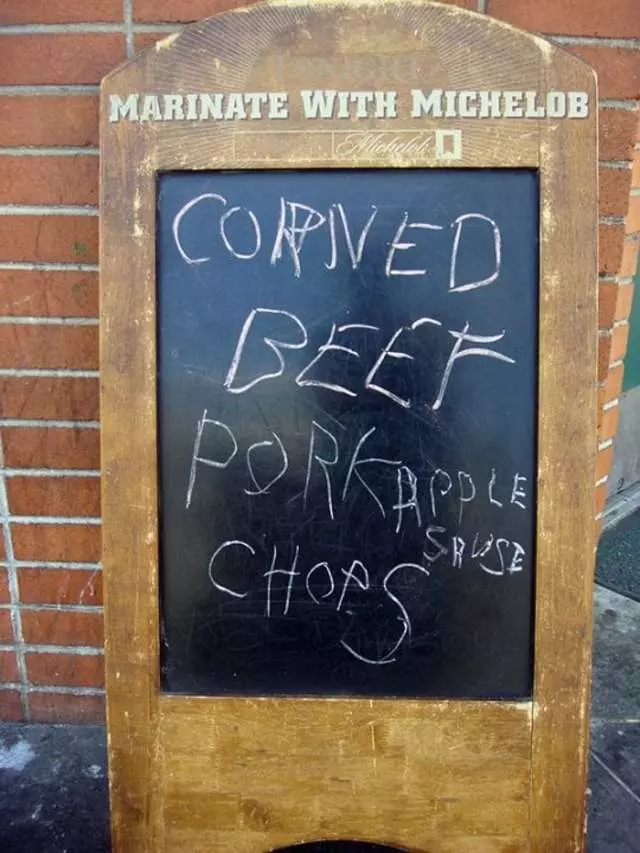 MARINATE WITH MICHELOB
Michelob
CORNED
BEEF
PORK APPLE
SAUSE
CHOPS